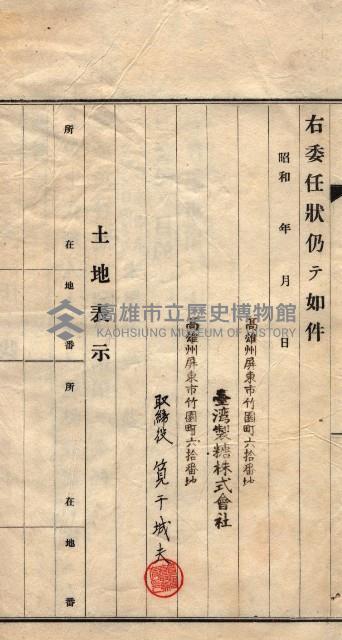 右委任狀仍テ如件
昭和 年 月 日
高雄州屏東市竹園町六拾番地
臺湾製糖株式會社
高雄州屏東市竹園町六拾番地
取締役 筧干城夫
土地表示
所在地番
所在地番
高雄市立歷史博物館
KAOHSIUNG MUSEUM OF HISTORY